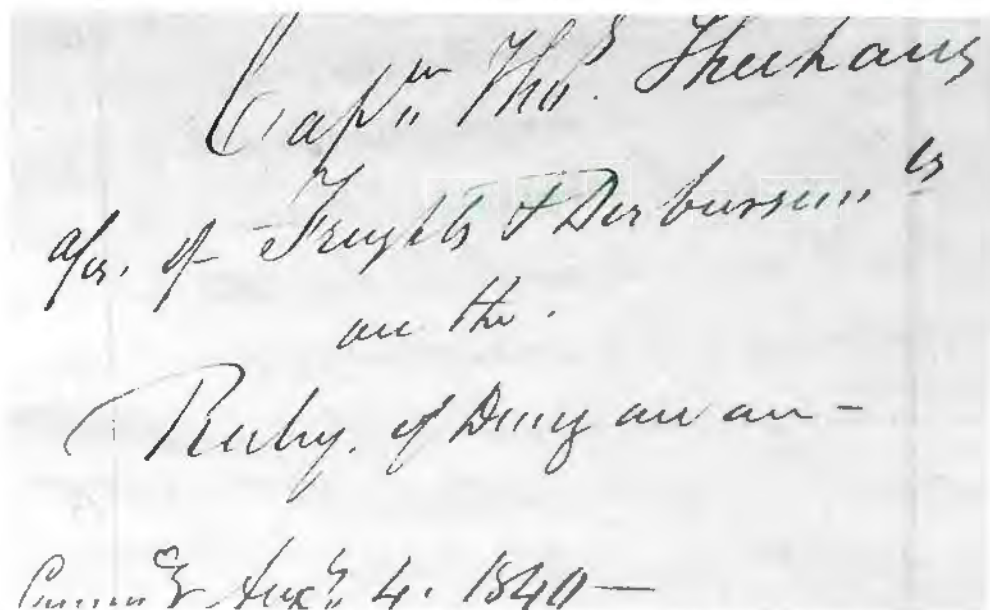 Capn Thos. Sheehans
a/cs. of Freights & Disbursemts
on the.
Ruby. of Dungarvan -
Augt 4. 1840 —